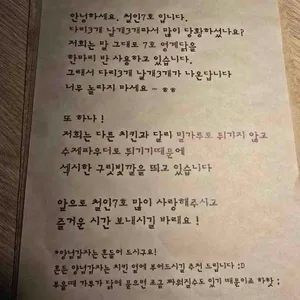 안녕하세요. 철인7호 입니다.
다리3개 날개3개라서 많이 당황하셨나요?
저희는 말 그대로 7호 영계닭을
한마리 반 사용하고 있습니다.
그래서 다리3개 날개3개가 나온답니다
너무 놀라지 마세요 - ㅎㅎ
또 하나!
저희는 다른 치킨과 달리 밀가루로 튀기지 않고
수제파우더로 튀기기때문에
섹시한 구릿빛깔을 띄고 있습니다
앞으로 철인7호 많이 사랑해주시고
즐거운 시간 보내시길 바래요!
*양념감자는 흔들어 드시구요!
흔든 양념감자는 치킨 옆에 부어드시길 추천 드립니다 :D
부을때 가루가 닭에 묻으면 조금 짜워질수도 있기 때문이죠 하핫 ;